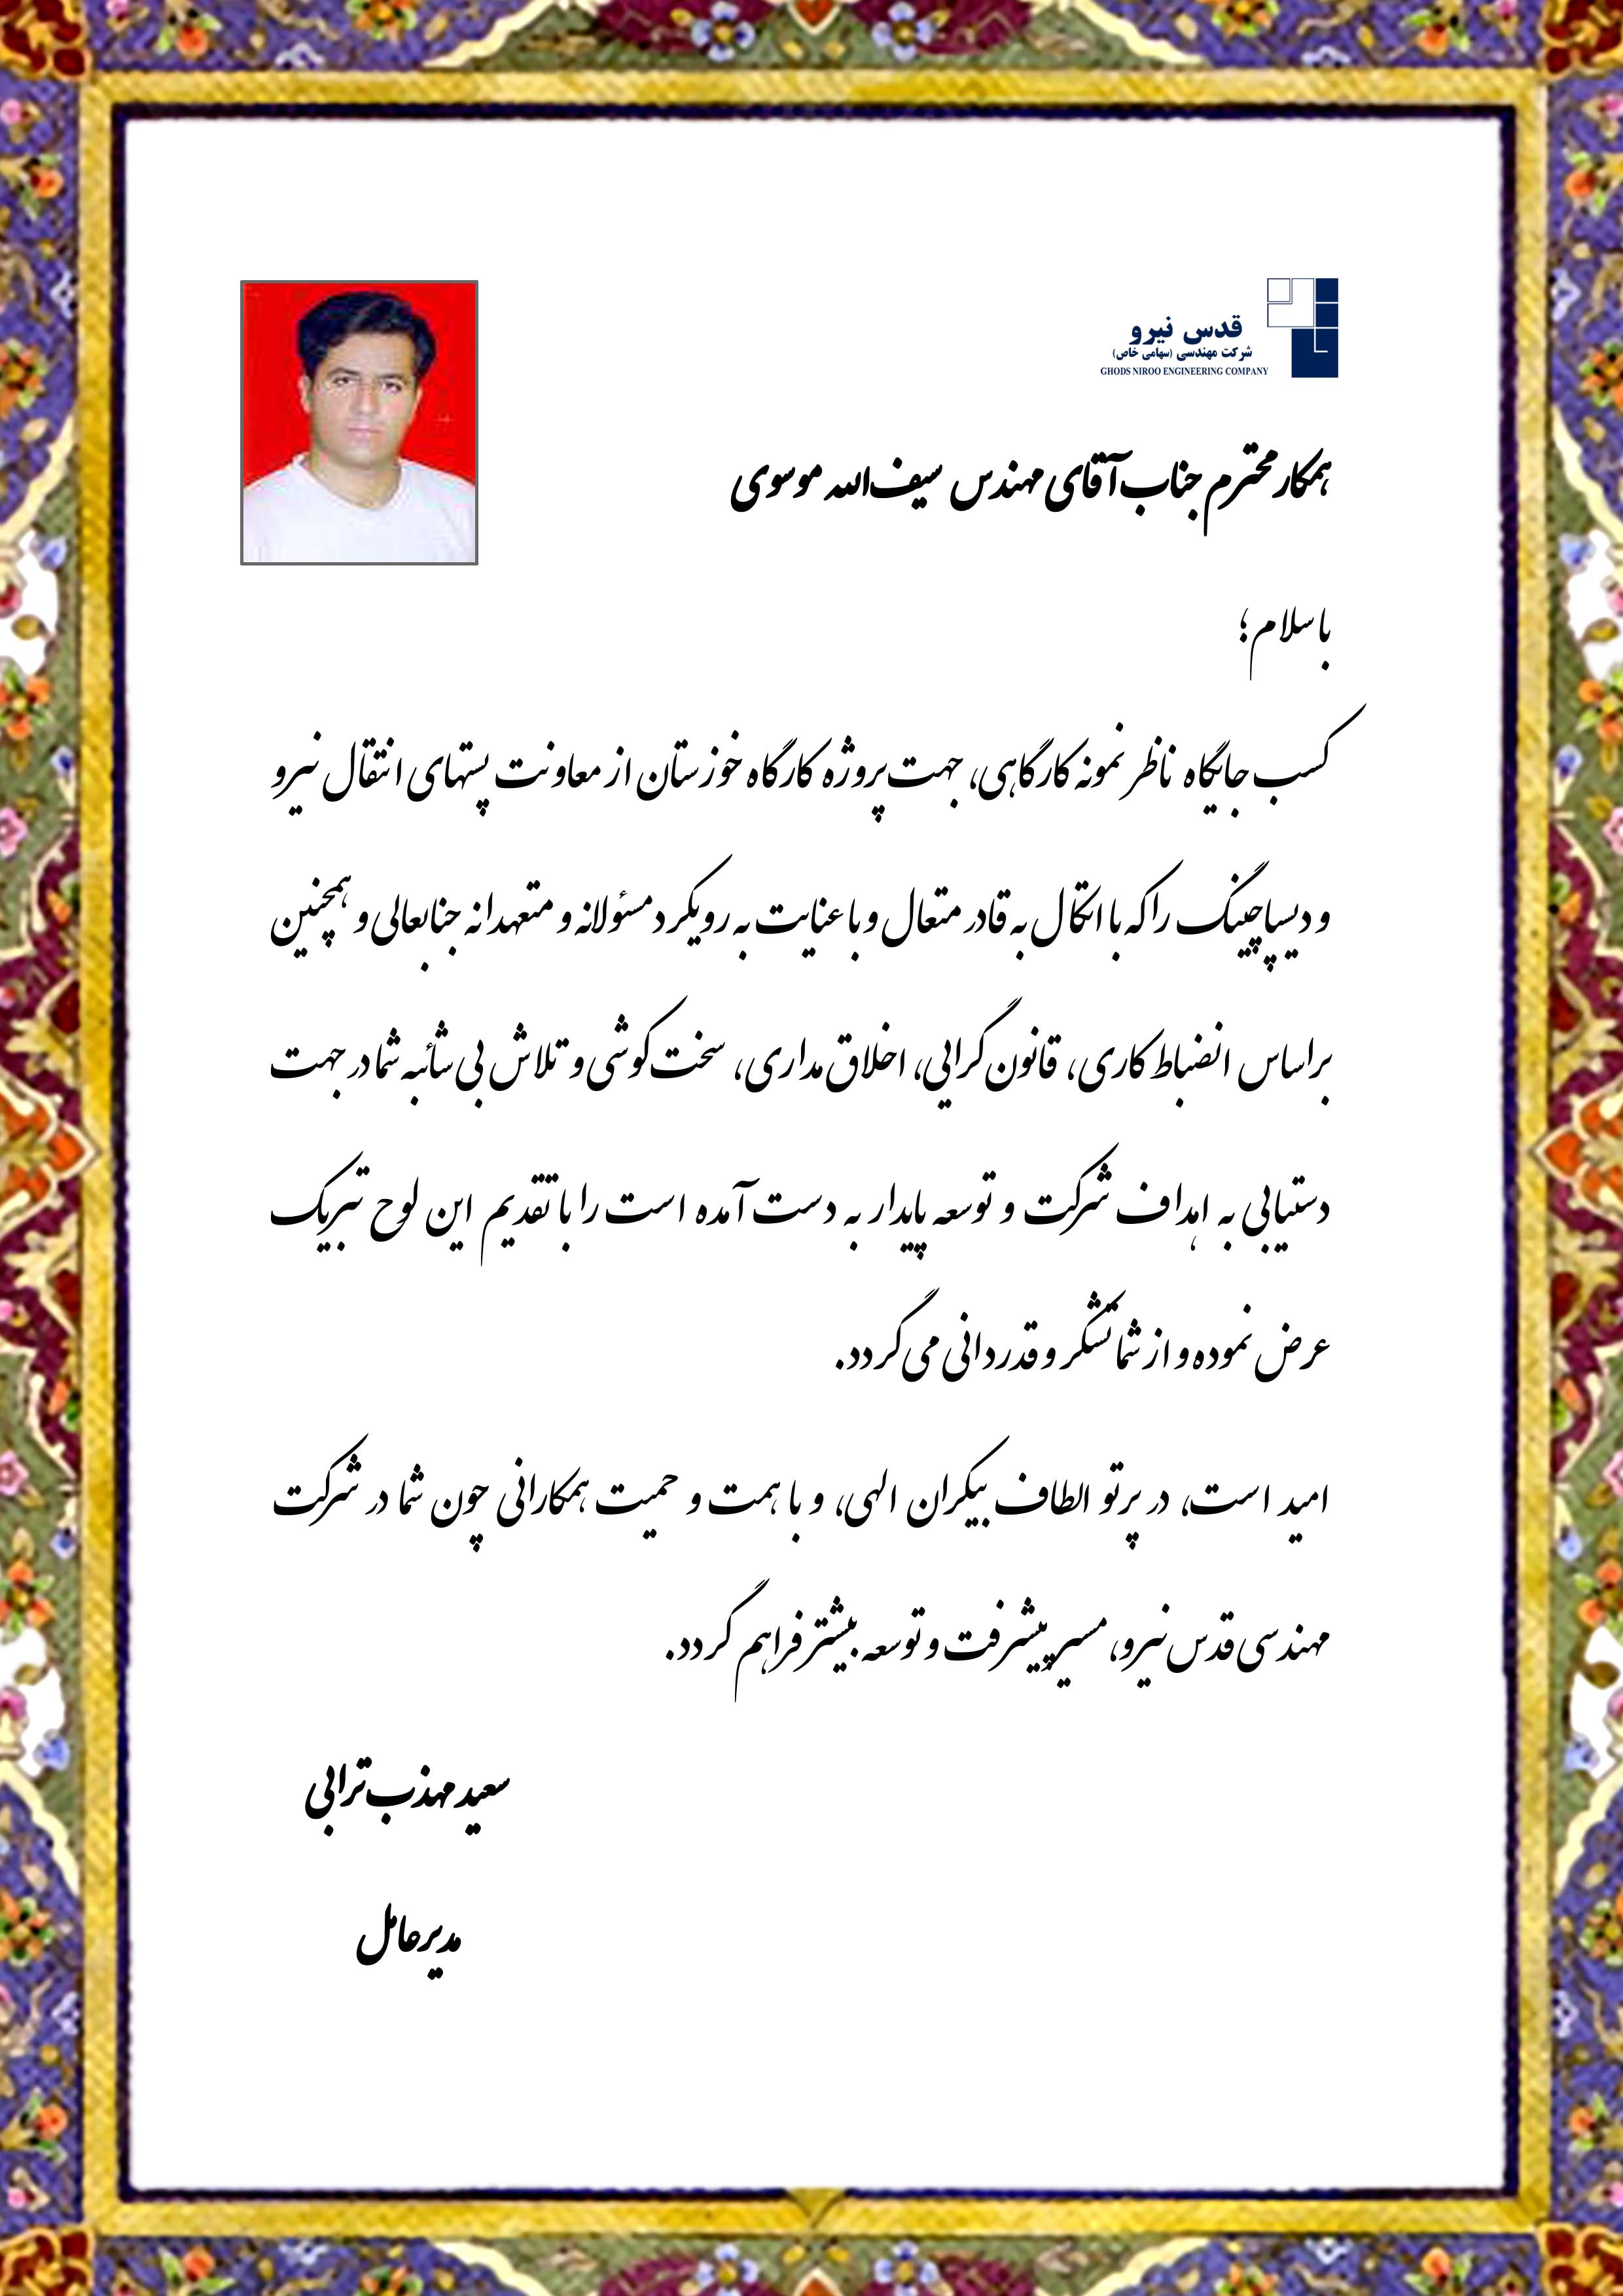 قدس نیرو
شرکت مهندسی (سهامی خاص)
GHODS NIROO ENGINEERING COMPANY
همکار محترم جناب آقای مهندس سیف‌الله موسوی
با سلام؛
کسب جایگاه ناظر نمونه کارگاهی، جهت پروژه کارگاه خوزستان از معاونت پستهای انتقال نیرو
و دیسپاچینگ را که با اتکال به قادر متعال و با عنایت به رویکرد مسئولانه و متعهدانه جنابعالی و همچنین
براساس انضباط کاری، قانون گرایی، اخلاق مداری، سخت کوشی و تلاش بی شائبه شما در جهت
دستیابی به اهداف شرکت و توسعه پایدار به دست آمده است را با تقدیم این لوح تبریک
عرض نموده و از شما تشکر و قدردانی می گردد.
امید است، در پرتو الطاف بیکران الهی، و با همت و حمیت همکارانی چون شما در شرکت
مهندسی قدس نیرو، مسیر پیشرفت و توسعه بیشتر فراهم گردد.
سعید مهذب ترابی
مدیرعامل